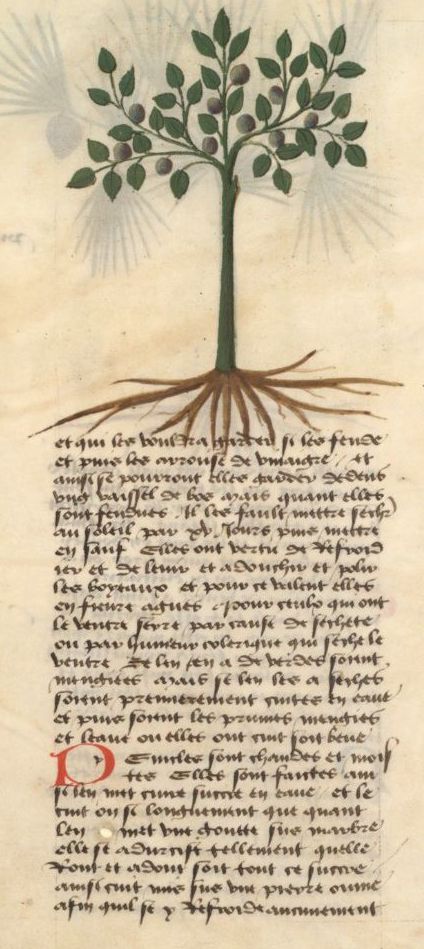 et qui les vouldra garder si les fende
et puis les arrouse de vinaigre / et
ainsi se pourront elles garder dedens
ung vaissel de bos Mais quant elles
sont fendues / Il les fault mettre sechr
au soleil par xv Jours puis mettre
en sauf Elles ont vertu de Refroid
ier et de lenir et adouchir et polir
les boyeaulx et pour ce valent elles
en fieure agues / pour ceulx qui ont
le ventre serre par cause de secheté
ou par humeur colerique qui seche le
ventre Se len en a de verdes soient
mengiees Mais se len les a seches
soient premierement cuites en eaue
et puis soient les prunes mengies
et leaue ou elles ont cuit soit beue
P Enicles sont chaudes et mois
tes Elles sont faictes ain
si len met cuire succre en eaue et le
cuit on si longuement que quant
len met une goutte sus marbre
elle se adurcist tellement quelle
Ront et adont soit tout ce succre
ainsi cuit mis sus une pierre onnie
afin quil se y Refroide aucunement